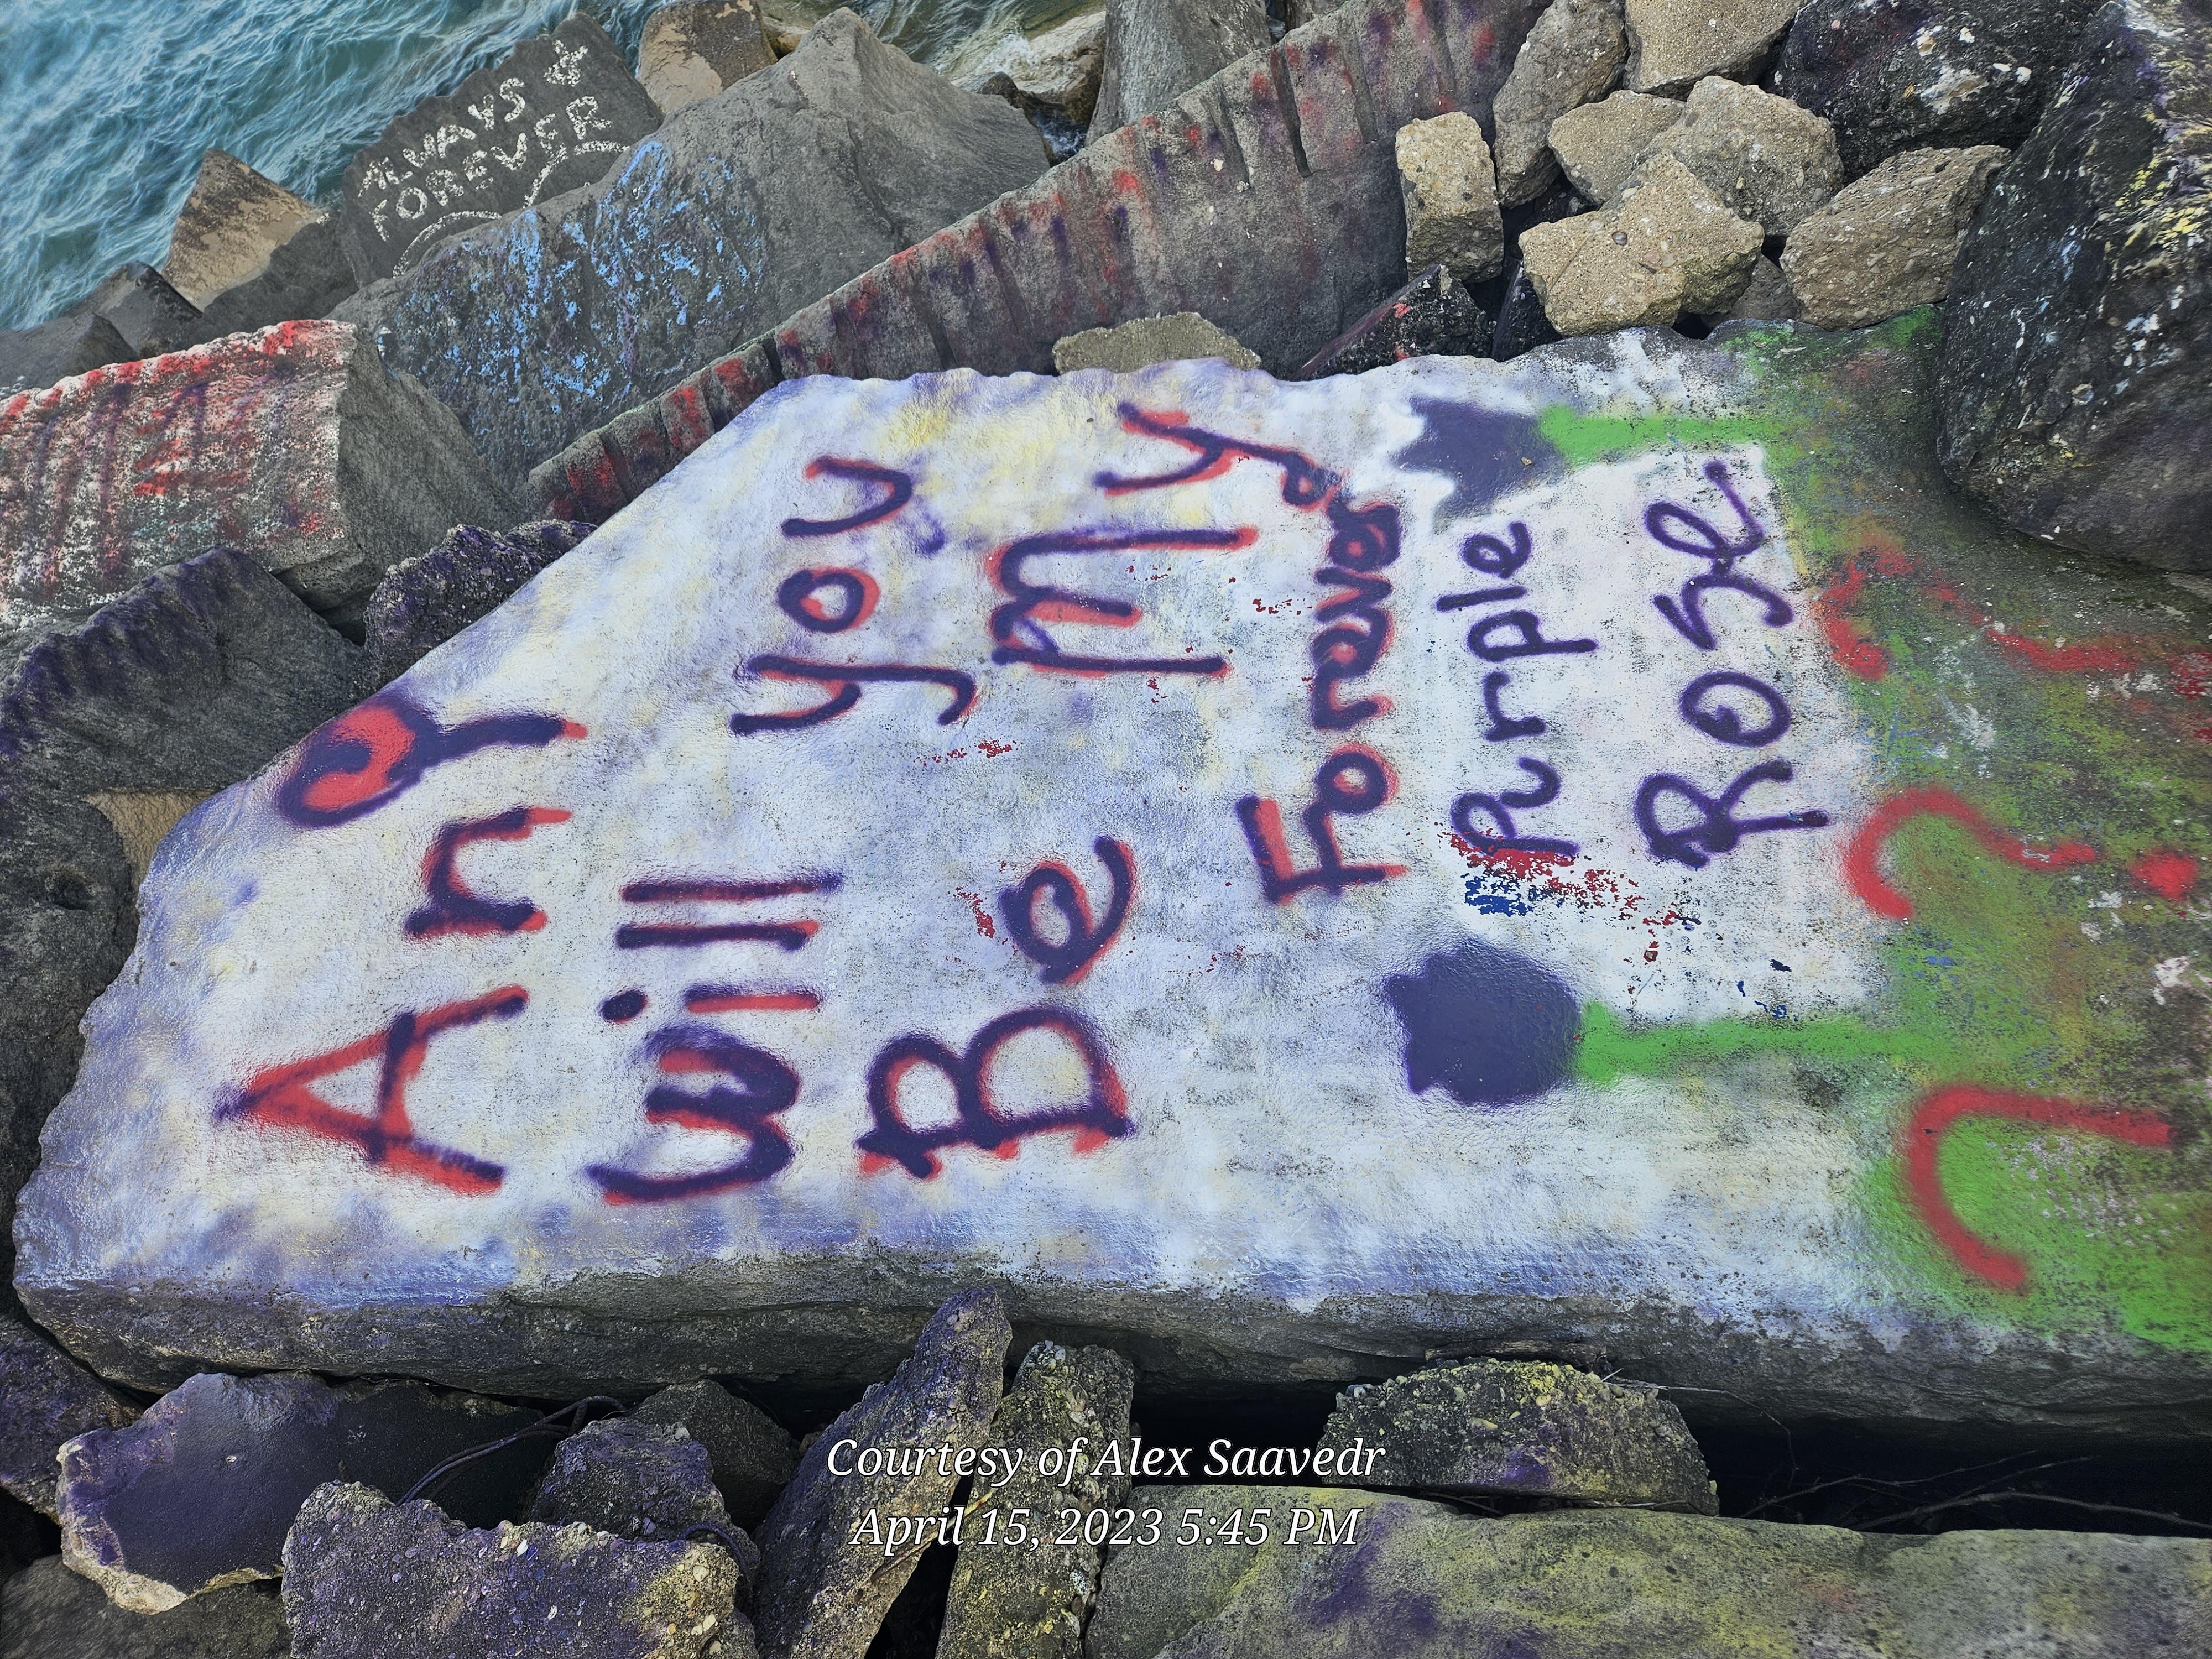 ALWAYS &
FOREVER
Any
will you
Be my
Forever
Purple
Rose
???
Courtesy of Alex Saavedr
April 15, 2023 5:45 PM